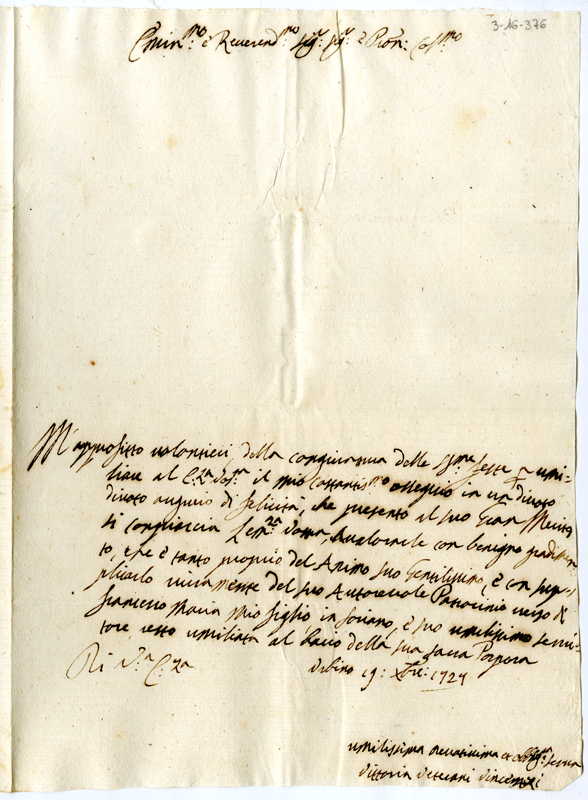 3-16-376
Emin:mo e Reverend:mo Sig:r Sig:r e Pron: Col:mo
M'approfitto volontieri della congiuntura delle SS:me feste p umi-
liare al E:za V:ra il mio costantis:mo ossequio in un divoto
divoto augurio di felicità, che presento al suo Gran Merito
si compiaccia l'em:za vostra, avalorarle con benigno gradimen
to, che è tanto proprio del Animo suo Gentilissimo, e con sup-
plicarlo vivamente del suo Autorevole Patrocinio verso di
Francesco Maria mio figlio in Soriano, e suo umilissimo servi-
tore, resto umiliata al bacio della sua sacra Porpora
Di V:a E:za
Urbino 19: Xbre: 1727
umilissima devotissima et obblig:ma serva
Vittoria Veterani Vincenzi